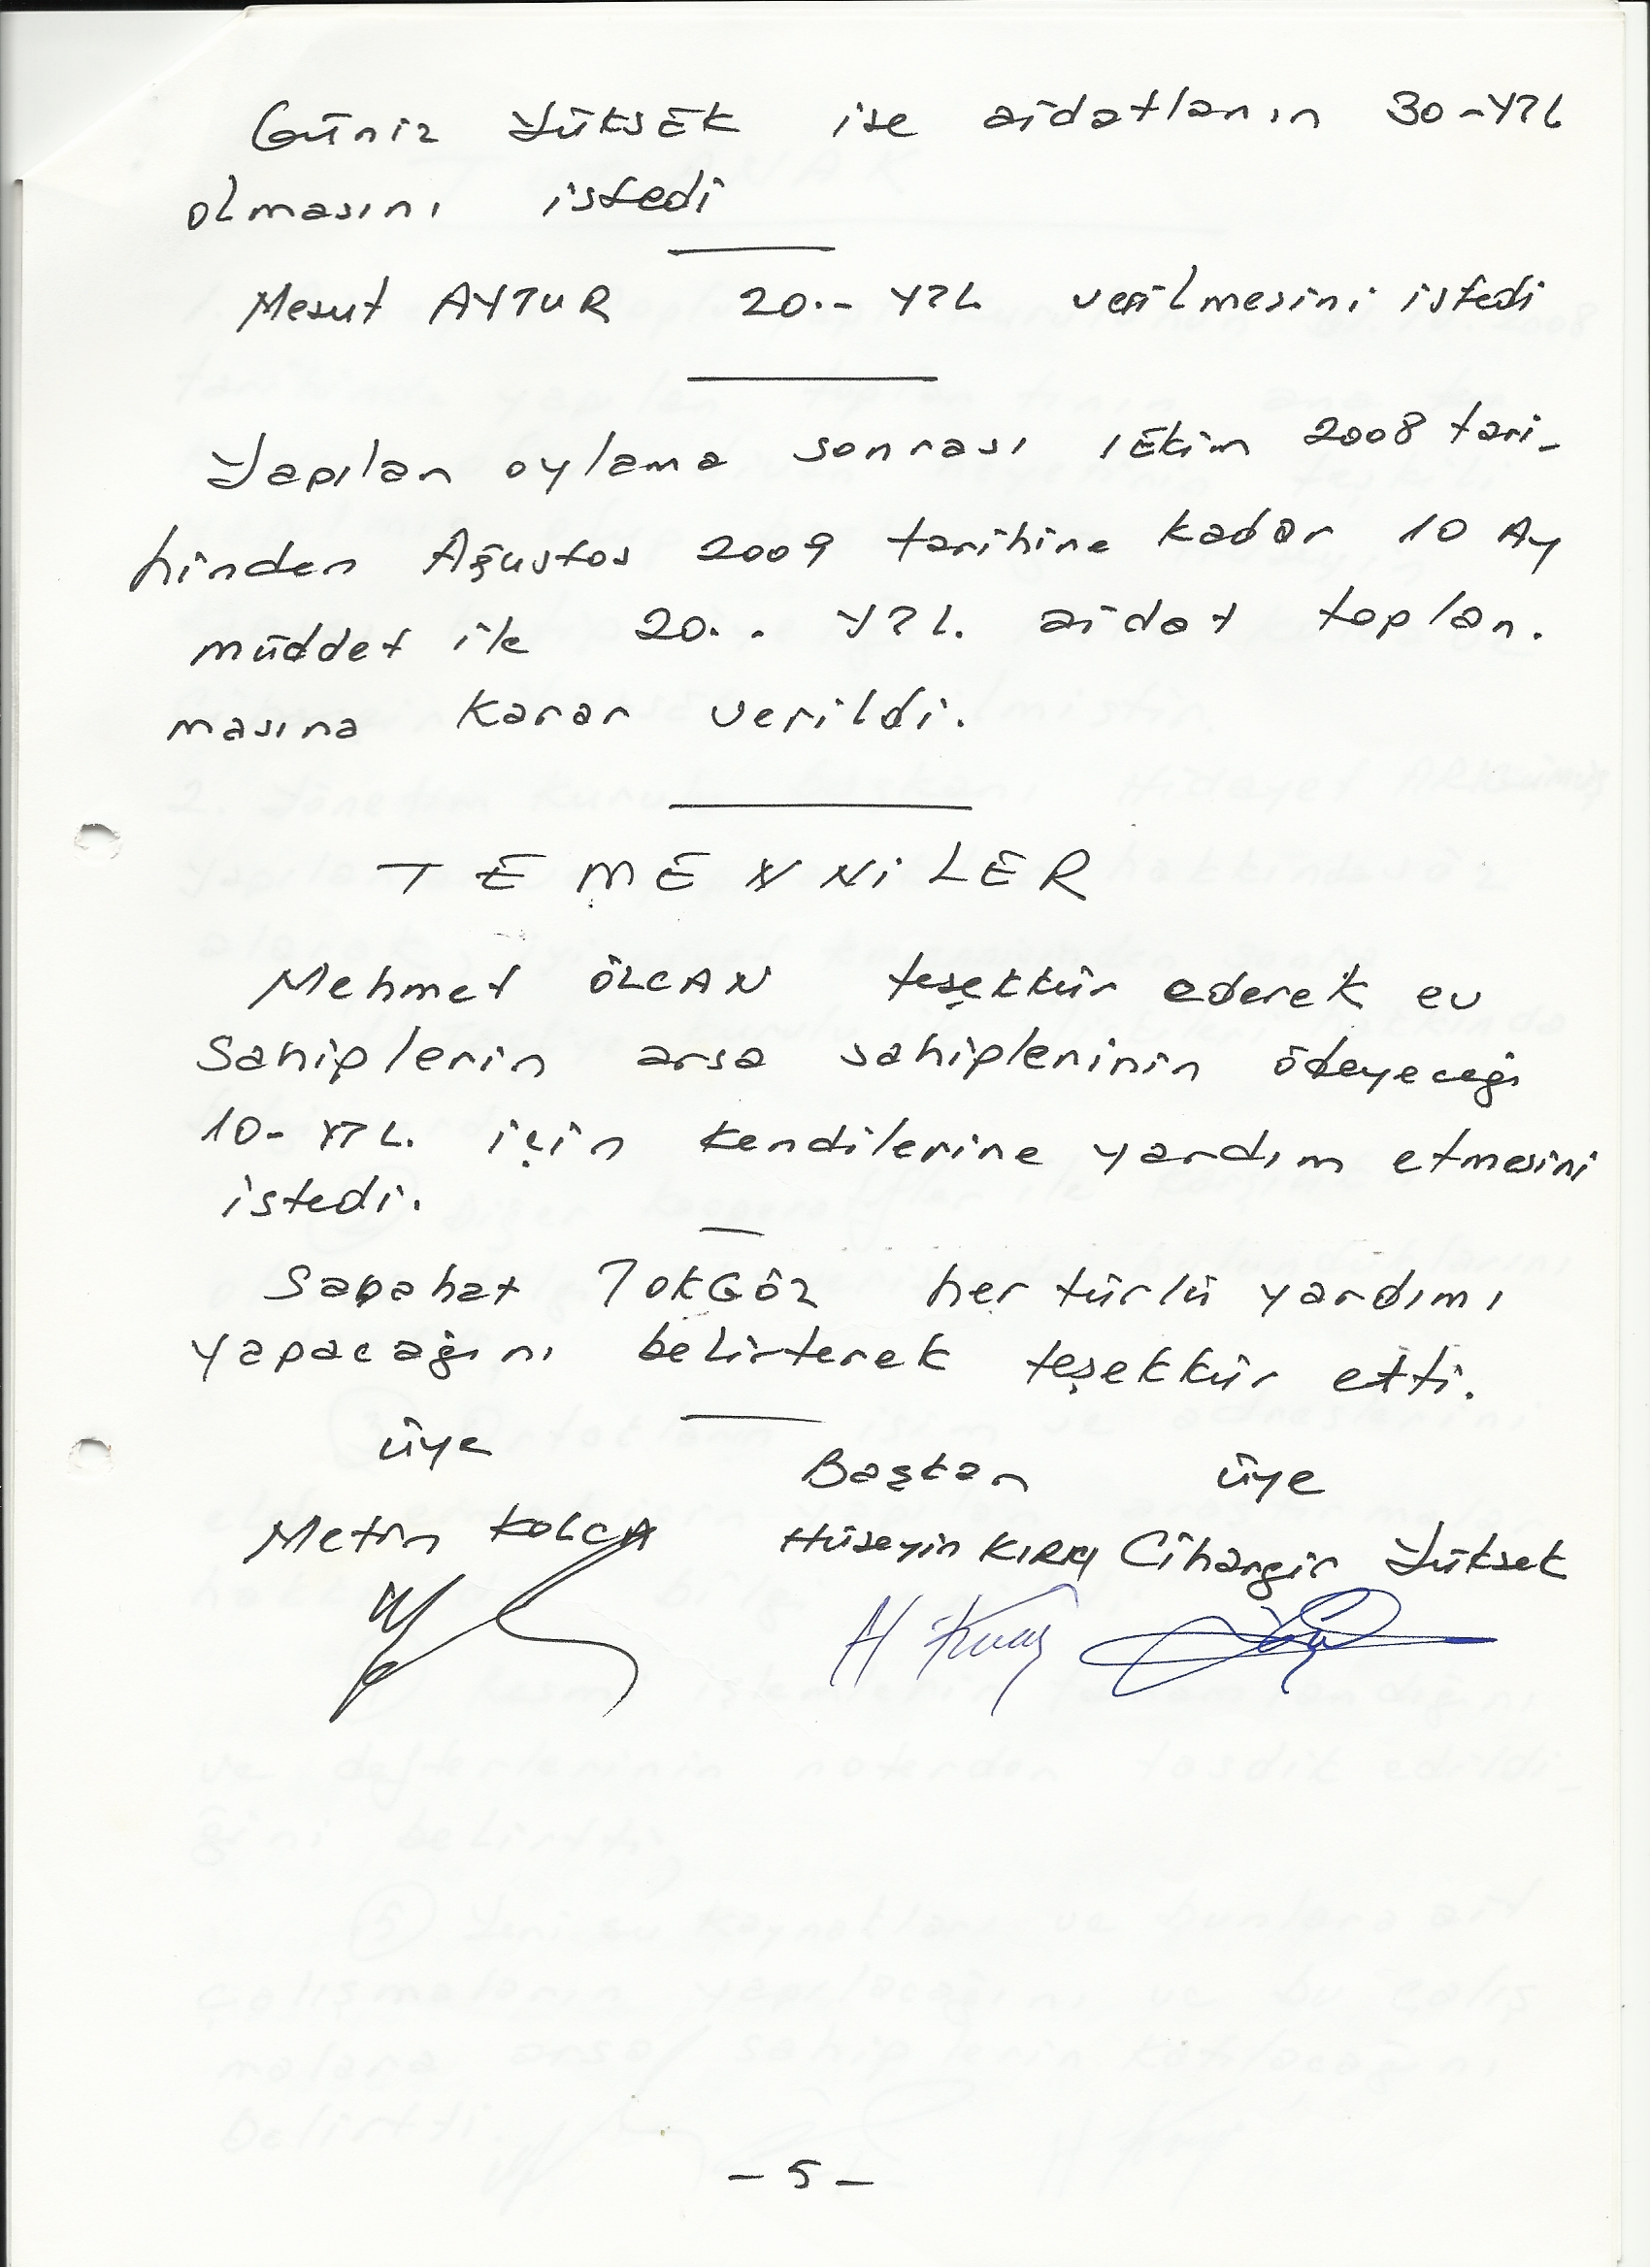 Güniz YükSEK ise aidatların 30-YTL
olmasını istedi
Mesut AYTUR 20.- YTL verilmesini istedi
Yapılan oylama sonrası 1 Ekim 2008 tari-
hinden Ağustos 2009 tarihine kadar 10 Ay
müddet ile 20.- YTL. aidat toplan.
masına karar verildi.
TEMENNiLER
Mehmet ÖZCAN teşekkür ederek ev
Sahiplerin arsa sahiplerinin ödeyeceği
10- YTL. için kendilerine yardım etmesini
istedi.
Sabahat TOKGÖZ her türlü yardımı
yapacağını belirterek teşekkür etti.
üye Başkan üye
Metin KOLCA Hüseyin Cihangir Yüksek
- 5 -